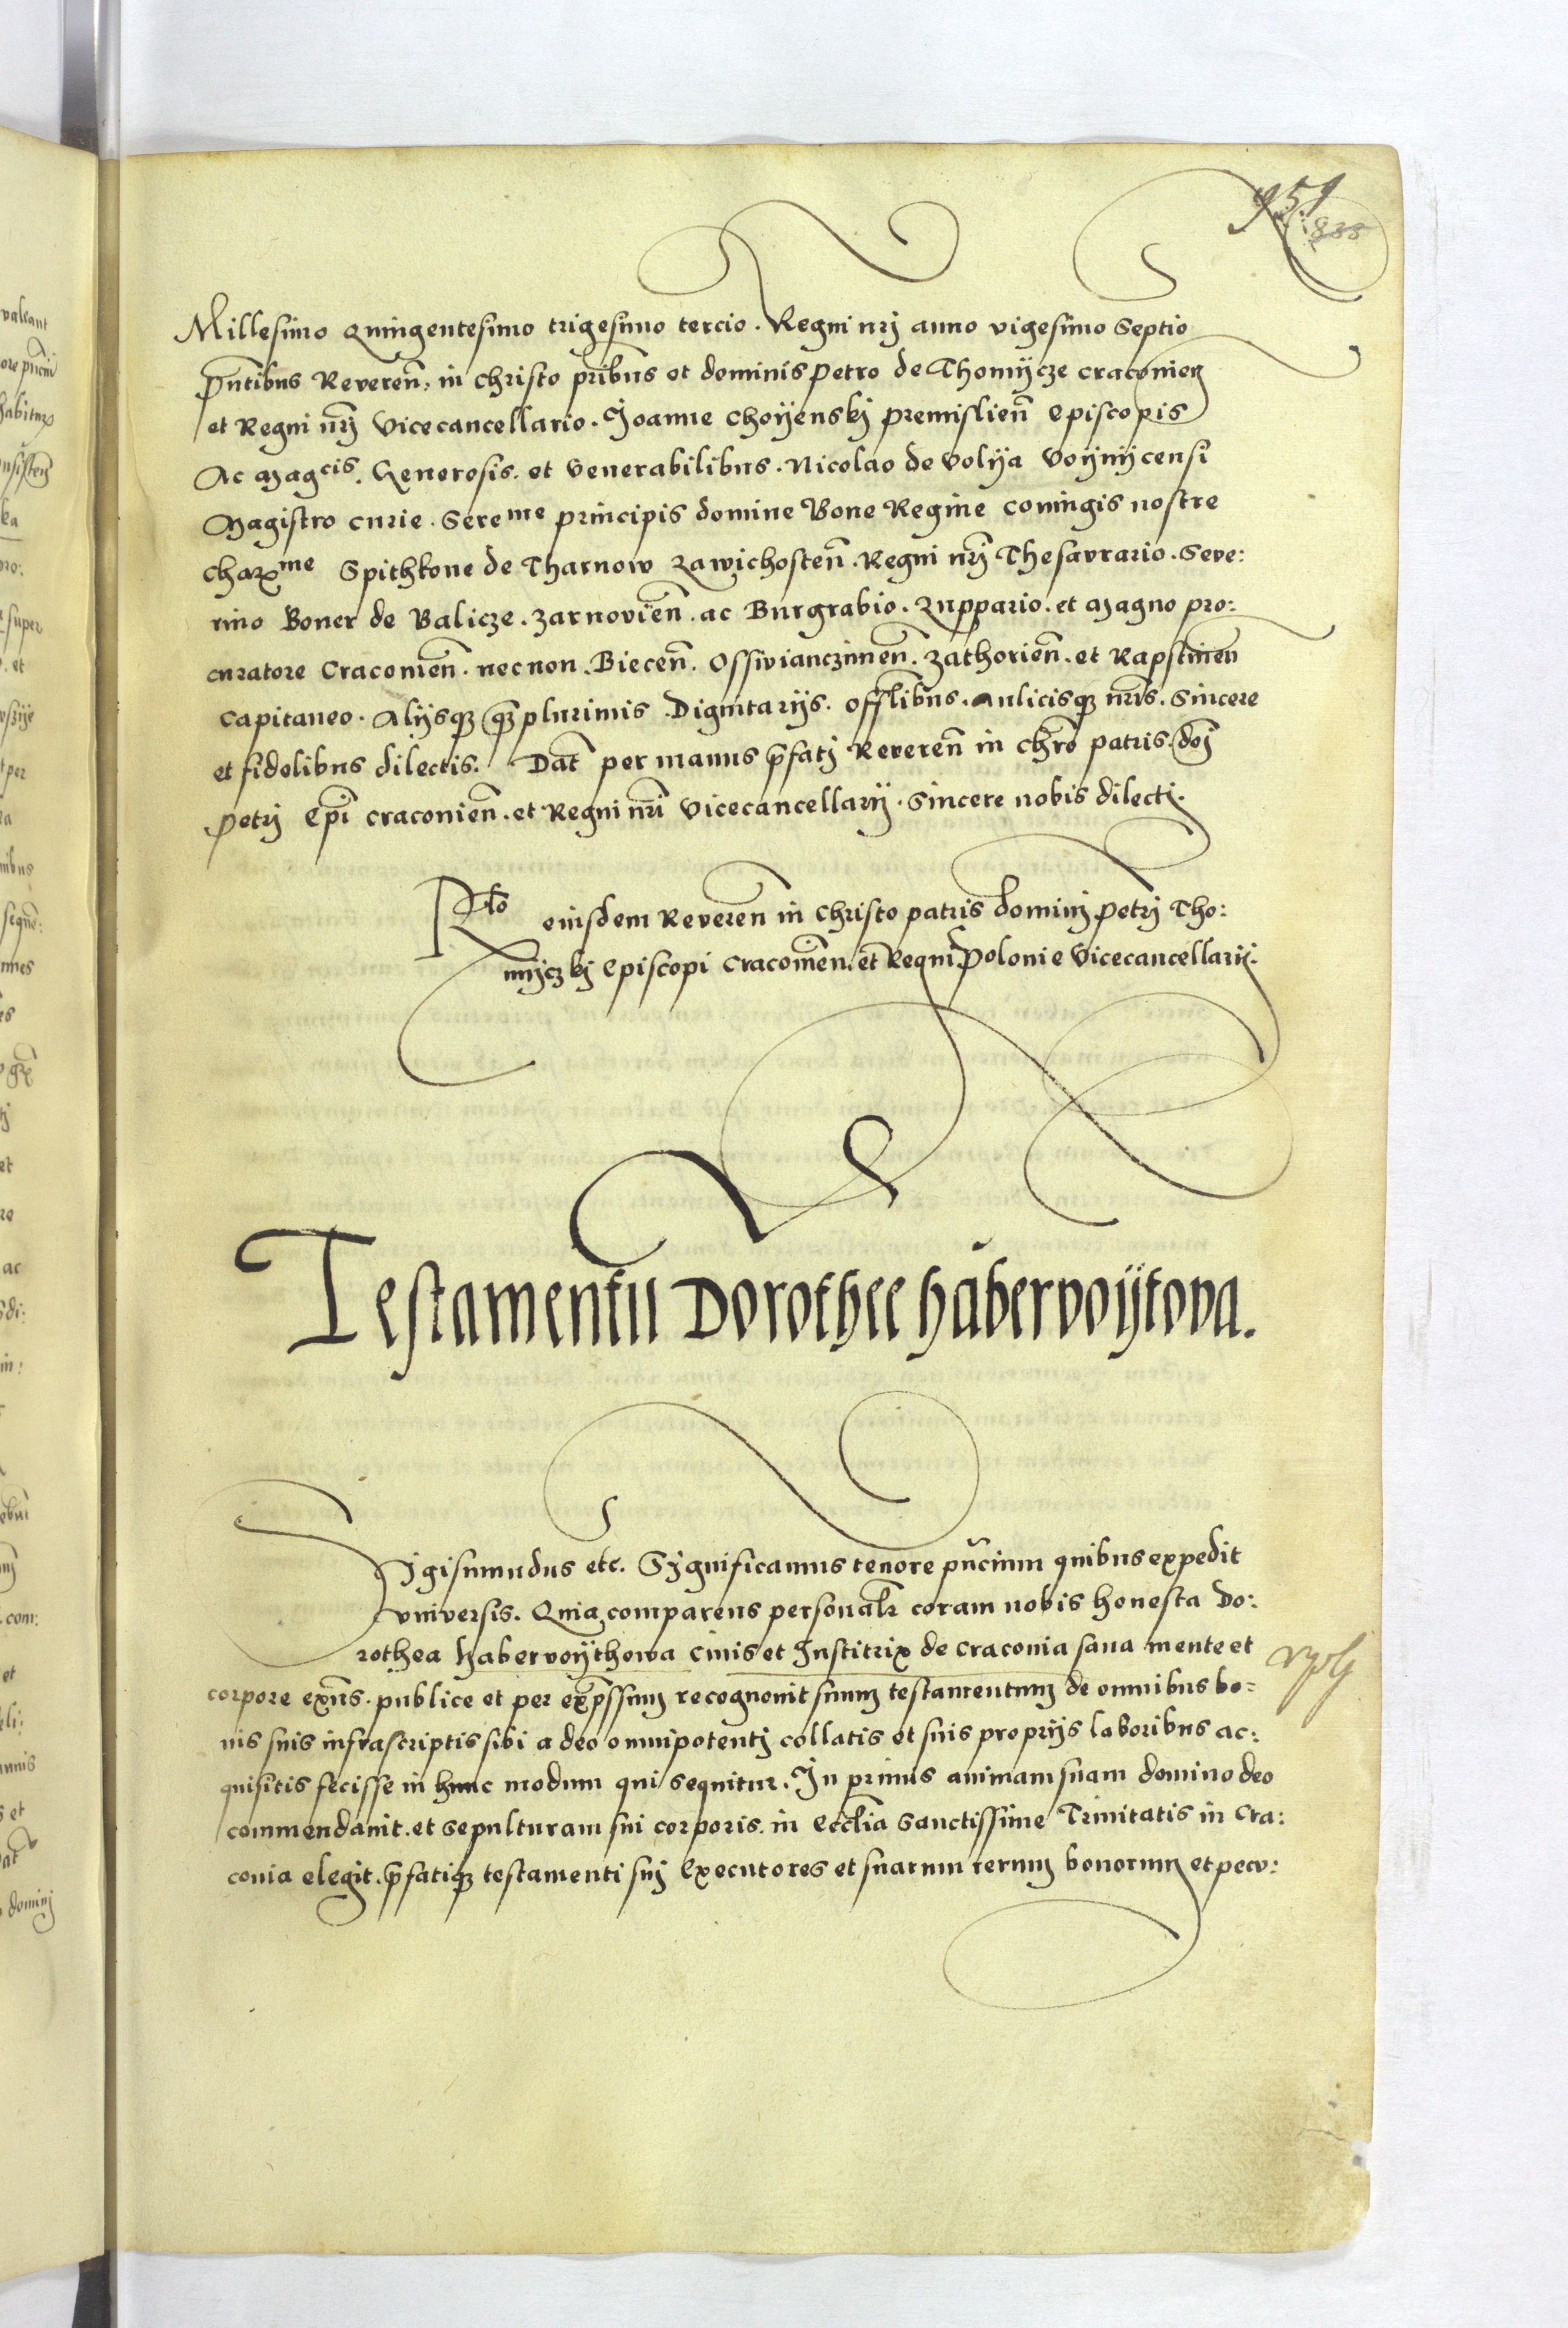 951
835
Millesimo Quingentesimo trigesimo tercio. Regni nrj anno vigesimo Septio
Pn̄tibus Reveren̄. in christo prībus et dominis Petro de Thomÿcze craconien
et Regni nr̄j Vicecancellario. Joanne Choÿenskj Premislien̄ Episcopis
Ac Magcis. Generosis. et Venerabilibus. Nicolao de Volÿa Voÿnÿcensi
Magistro curie. Sereme principis domine Bone Regine coniugis nostre
charme Spithkone de Tharnow Zawichosten̄. Regni nr̄j Thesavrario. Seve:
rino Boner de Balicze. Zarnovien̄. ac Burgrabio. Zuppario. et Magno pro:
curatore Cracovien̄. necnon. Biecen̄. Osswianczimen̄. Zathorien̄. et Rapstinen
Capitaneo. Alÿsq3 q̄3plurimis Dignitarÿs. Offl̄ibus. Aulicisq3 nr̄is. Sincere
et fidelibus dilectis. Dat̄ per manus p̄fatj Reveren̄ in chr̄o patris. dn̄j
Petrj Ep̄i craconien̄. et Regni nr̄i Vicecancellarÿ. Sincere nobis dilecti.
Rlo eiusdem Reveren̄ in Christo patris dominj Petrj Tho:
mÿczkj Episcopi Cracovien̄. et Regni Polonie Vicecancellarÿ.
Testamentū Dorothee habervoÿtova.
Sigismundus etc. Significamus tenore pn̄cium quibus expedit
vniversis. Quia comparens personalr̄ coram nobis honesta Do:
rothea habervoÿthowa Civis et Institrix de Craconia sana mente et
corpore exn̄s. publice et per exp̄ssum recognovit suum testamentum de omnibus bo:
nis suis infrascriptis sibi a deo omnipotentj collatis et suis proprÿs laboribus ac:
quisitis fecisse in hunc modum qui sequitur. In primus animam suam domino deo
commendavit. et sepulturam sui corporis. in Eccl̄ia Sanctissime Trinitatis in Cra:
covia elegit. p̄fatiq3 testamenti suj Executores et suarum rerum bonorum et pecu: